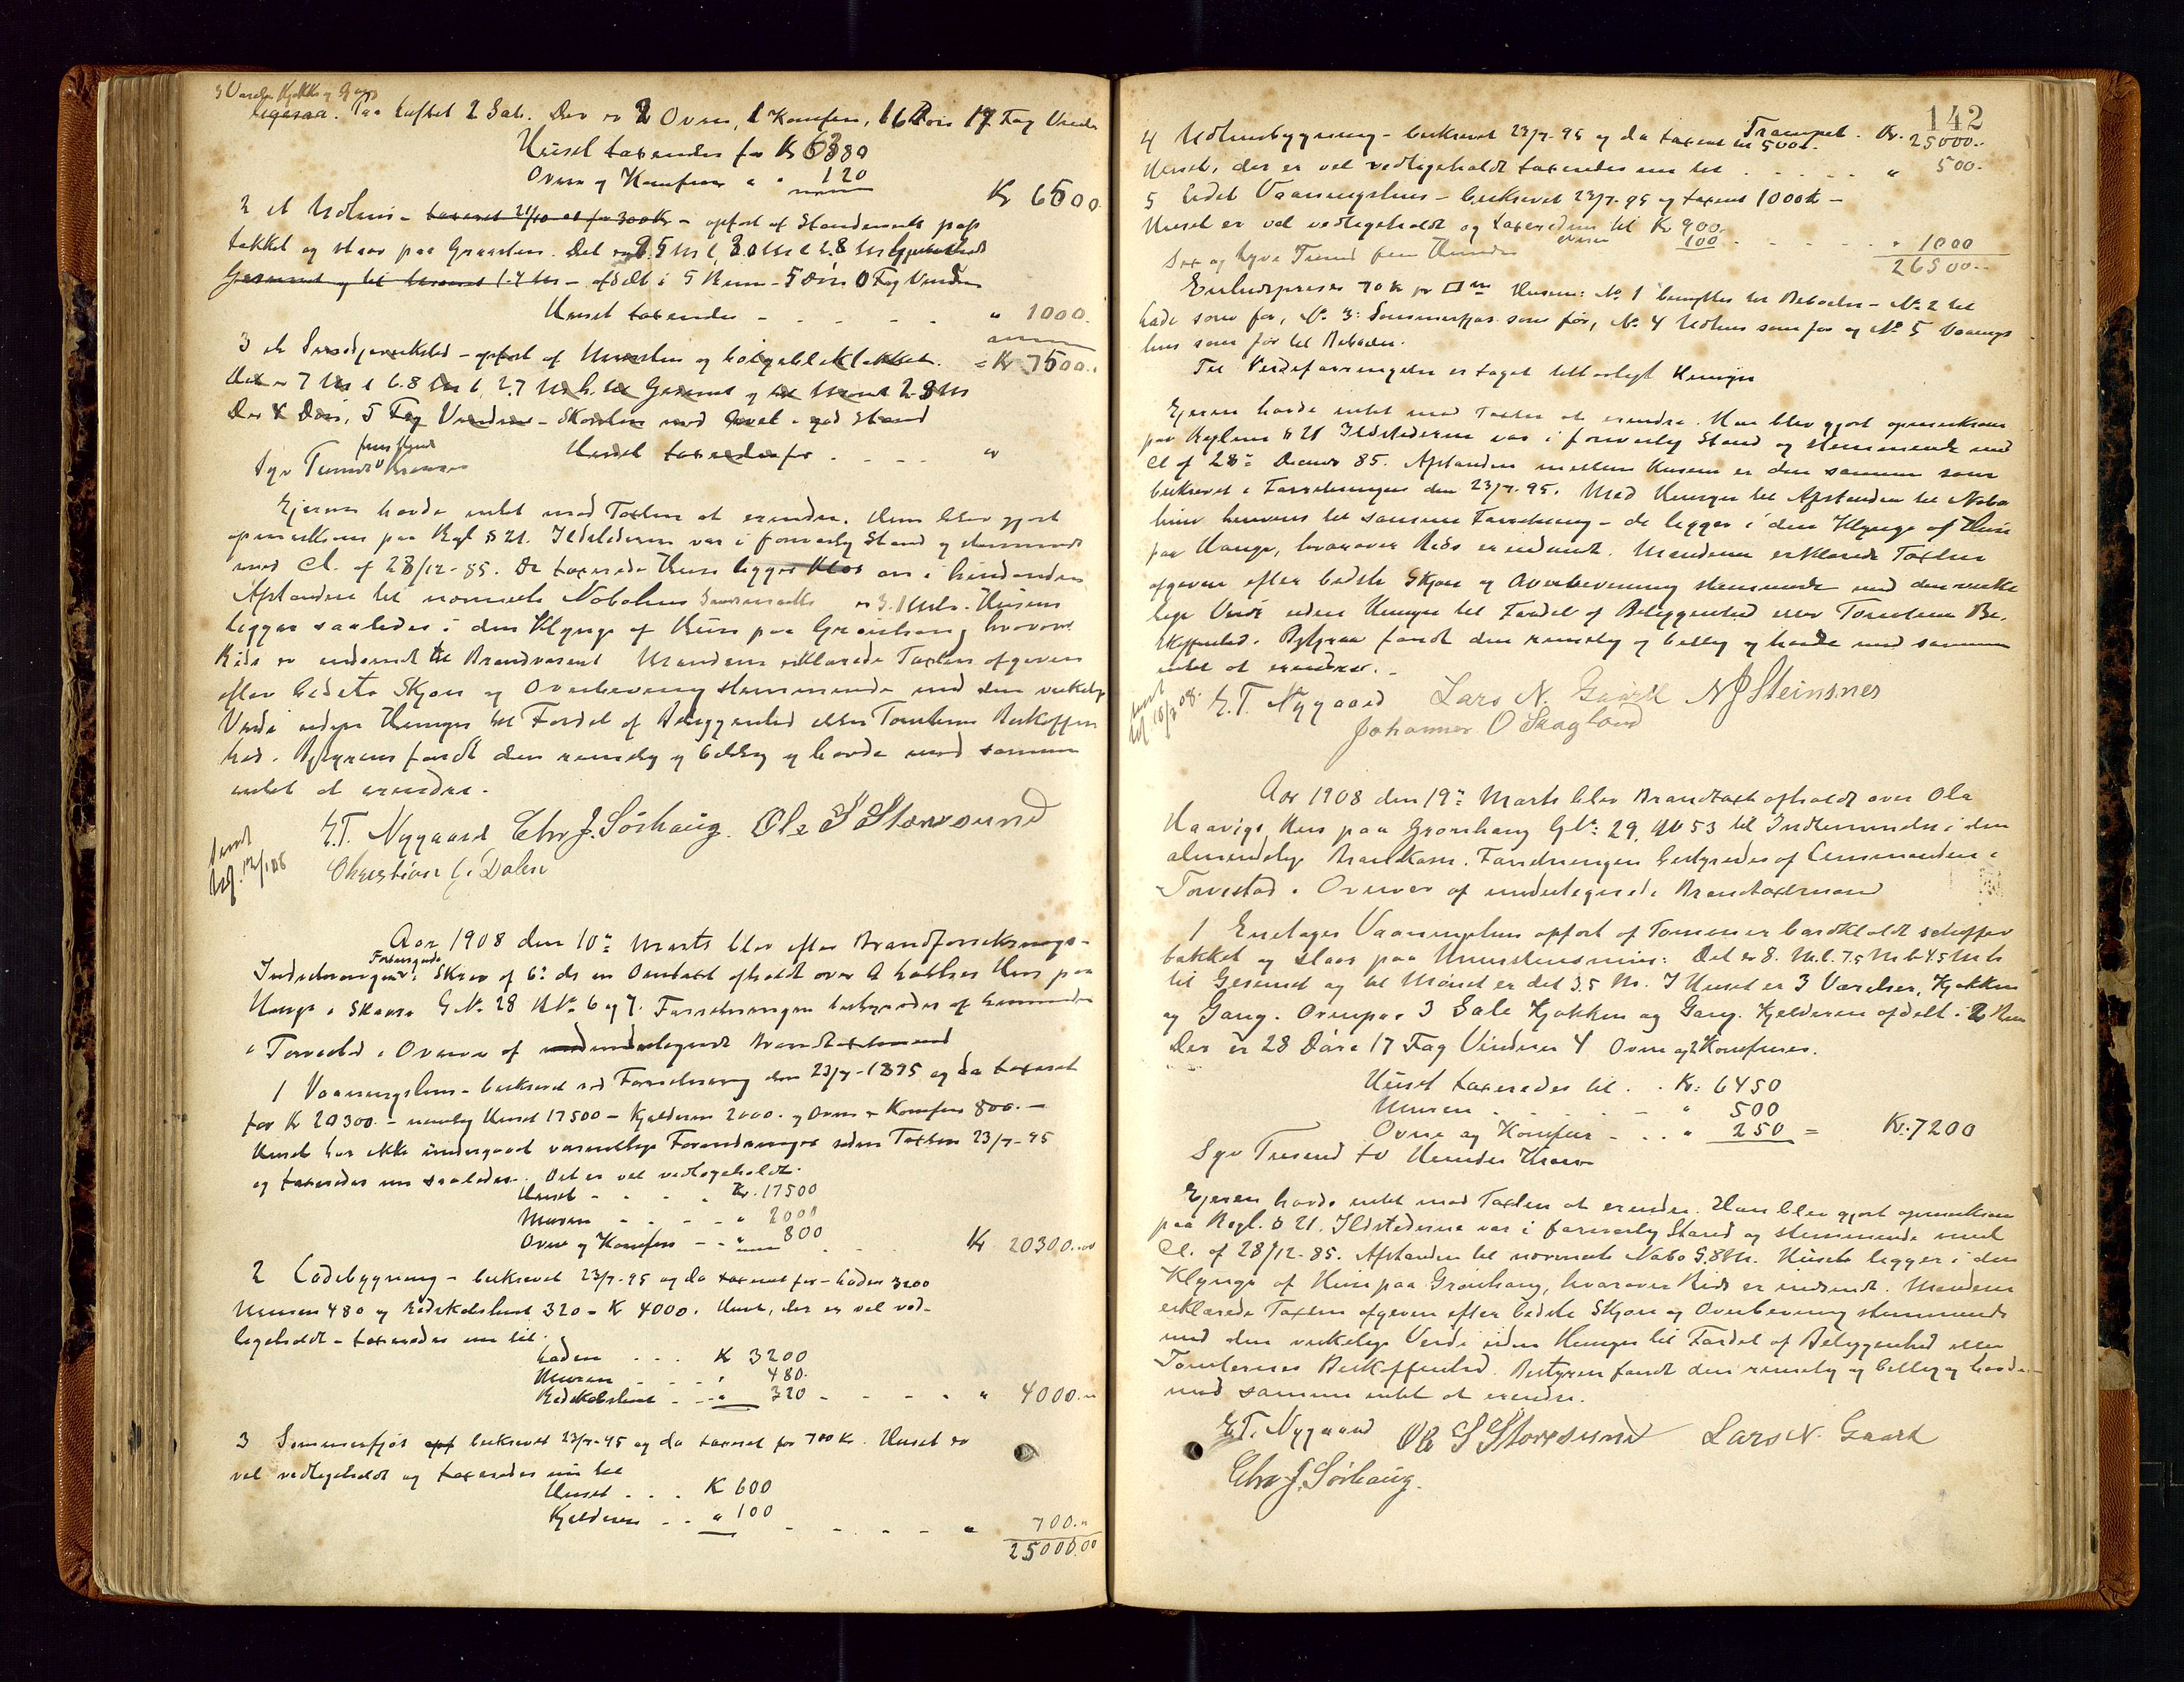 3 Værelser Kjøkken og Gang
ligesaa. Paa Loftet 2 Sale. Der er 2 Ovne, 1 Komfur, 16 Døre 17 Fag Vinduer
Huset taxeredes for Kr 6380
Ovne og Komfur " " 120
Kr 6500
2 et Udhus - taxeret for 300 Kr - opført af Standerverk pap
takket og staar paa Graasten. Det er 9.5 M l, 3.0 M b 2.8 M h
Gesimset og til Mønet 1.7 M - afdelt i 5 Rum - 5 Døre 0 Fag Vinduer
Huset taxeredes - - - - - " 1000.
3 et Smedjeverksted - opført af Mursten og bølgebliktakket. = Kr 7500..
Det er 7 M l 6.8 M b, 2.7 M h. til Gesimset og til Mønet 2.8 M
Der 4 Døre, 5 Fag Vinduer - Skorsten med Avel i god Stand
Huset taxeredes for - - - - "
Syv Tusende fem Hundr Kroner
Ejeren havde intet mod Taxten at erindre. Han blev gjort
opmerksom paa Regl § 21. Ildstederne var i forsvarlig Stand og stemmende
med Cl. af 28/12-85. De taxerede Huse ligger klos an i hinanden
Afstanden til nærmeste Nabohus er 3.1 Mtr. Husene
ligger saaledes i den Klynge af Huse paa Grønhaug hvorover
Rids er indsendt til Brandvæsenet Mændene erklærede Taxten afgiven
efter bedste Skjøn og Overbevisning stemmende med den virkelige
Verdi uden Hensyn til Fordel af Beliggenhed eller Tomtens Beskaffen
hed. Bestyreren fandt den rimelig og billig og havde mod samme
intet at erindre.
E.T. Nygaard Chr J. Sørhaug. Ole S Storesund
Christian C. Dalen
sendt
Udf. 12/1 08
Aar 1908 den 10de Marts blev efter Brandforsikrings-
Indretningens Forlangende i Skriv af 6te ds en Omtaxt afholdt over A Lothes Hus paa
Hauge i Skaare G No 28 B No 6 og 7. Forretningen bestyredes af Lensmanden
i Torvestad i Overvær af undertegnede Brandtaxtmænd
1 Vaaningshus - beskrevet ved Forretning den 23/7-1895 og da taxeret
for Kr 20300 - nemlig Huset 17500 - Kjelderen 2000. og Ovne & Komfur 800.-
Huset har ikke undergaaet væsentlige Forandringer siden Taxten 23/7-95
og taxeredes nu saaledes. Det er vel vedligeholdt.
Huset - - - - Kr. 17500
Muren - - - - " 2000
Ovne og Komfur - - " 800 Kr 20300.00
2 Ladebygning - beskrevet 23/7-95 og da taxeret for - Laden 3200
Muren 480 og Redskabshuset 320 = Kr 4000. Huset, der er vel ved-
ligeholdt - taxeredes nu til:
Laden - - - Kr 3200
Muren - - - " 480.
Redskabshuset - - " 320 - - - - " 4000.-
3 Sommerfjøs beskrevet 23/7-95 og da taxeret for 700 Kr. Huset er
vel vedligeholdt og taxeredes nu til
Huset - - - Kr 600
Kjelderen - - " 100 - - - - " 700.-
25000.00
142
Transport. Kr. 25000..
4 Udhusbygning - beskrevet 23/7-95 og da taxeret til 500Kr.
Huset, der er vel vedligeholdt taxeredes nu til - - - - - " 500.
5 Lidet Vaaningshus - beskrevet 23/7-95 og taxeret 1000 Kr -
Huset er vel vedligeholdt og taxeredes til Kr 900.
Ovnen 100 - - - - - " 1000
Sex og tyve Tusend fem Hundre
26500..
Enhedspriser 70 Kr pr □ m Husene: No 1 benyttes til Beboelse - No 2 til
Lade som før, No 3: Sommerfjøs som før, No 4 Udhus som før og No 5 Vaanings
hus som før til Beboelse.
Til Verdiforringelse er taget tilbørligt Hensyn
Ejeren havde intet mod Taxten at erindre. Han blev gjort opmerksom
paa Reglens § 21 Ildstederne var i forsvarlig Stand og stemmende med
Cl af 28de Decembr 85. Afstanden mellem Husene er den samme som
beskrevet i Forretningen den 23/7-95. Med Hensyn til Afstanden til Nabo
huse henvises til samme Forretning - de ligger i den Klynge af Huse
paa Hauge, hvorover Rids er indsendt. Mændene erklærede Taxten
afgiven efter bedste Skjøn og Overbevisning stemmende med den virke
lige Verdi uden Hensyn til Fordel af Beliggenhed eller Tomtens Be-
skaffenhed. Bestyreren fandt den rimelig og billig og havde mod samme
intet at erindre. -
sendt
Udf 18/3 08.
E.T. Nygaard Lars N. Gaard NJ Steinsnes
Johannes O Skagland
Aar 1908 den 19de Marts blev Brandtaxt afholdt over Ola
Haaviges Hus paa Grønhaug G No: 29, B No 53 til Indtrædende i den
almindelige Brandkasse. Forretningen bestyredes af Lensmanden i
Torvestad i Overvær af undertegnede Brandtaxtmænd
1 Enetages Vaaningshus opført af Tømmer bordklædt skiffer
takket og staar paa Murstensmur: Det er 8. M. l. 7.5 M b 4.5 M h
til Gesimset og til Mønet er det 3.5 M. I Huset er 3 Værelser, Kjøkken
og Gang. Ovenpaa 3 Sale Kjøkken og Gang. Kjelderen afdelt i 2 Rum
Der er 28 Døre 17 Fag Vinduer 4 Ovne og 2 Komfurer.
Huset taxeredes til . . Kr: 6450
Muren . . . . - " 500
Ovne og Komfur - . . " 250 = Kr: 7200
Syv Tusend to Hundre Kroner
Ejeren havde intet mod Taxten at erindre. Han blev gjort opmerksom
paa Regl. § 21. Ildstederne var i forsvarlig Stand og stemmende med
Cl. af 28/12-85. Afstanden til nærmeste Nabo 5.8 M. Huset ligger i den
Klynge af Huse paa Grønhaug, hvorover Rids er indsendt. Mændene
erklærede Taxten afgiven efter bedste Skjøn og Overbevisning stemmende
med den virkelige Verdi uden Hensyn til Fordel af Beliggenhed eller
Tomternes Beskaffenhed. Bestyreren fandt den rimelig og billig og havde
mod samme intet at erindre.
E.T. Nygaard Ole S Storesund Lars N. Gaard
Chr J. Sørhaug.